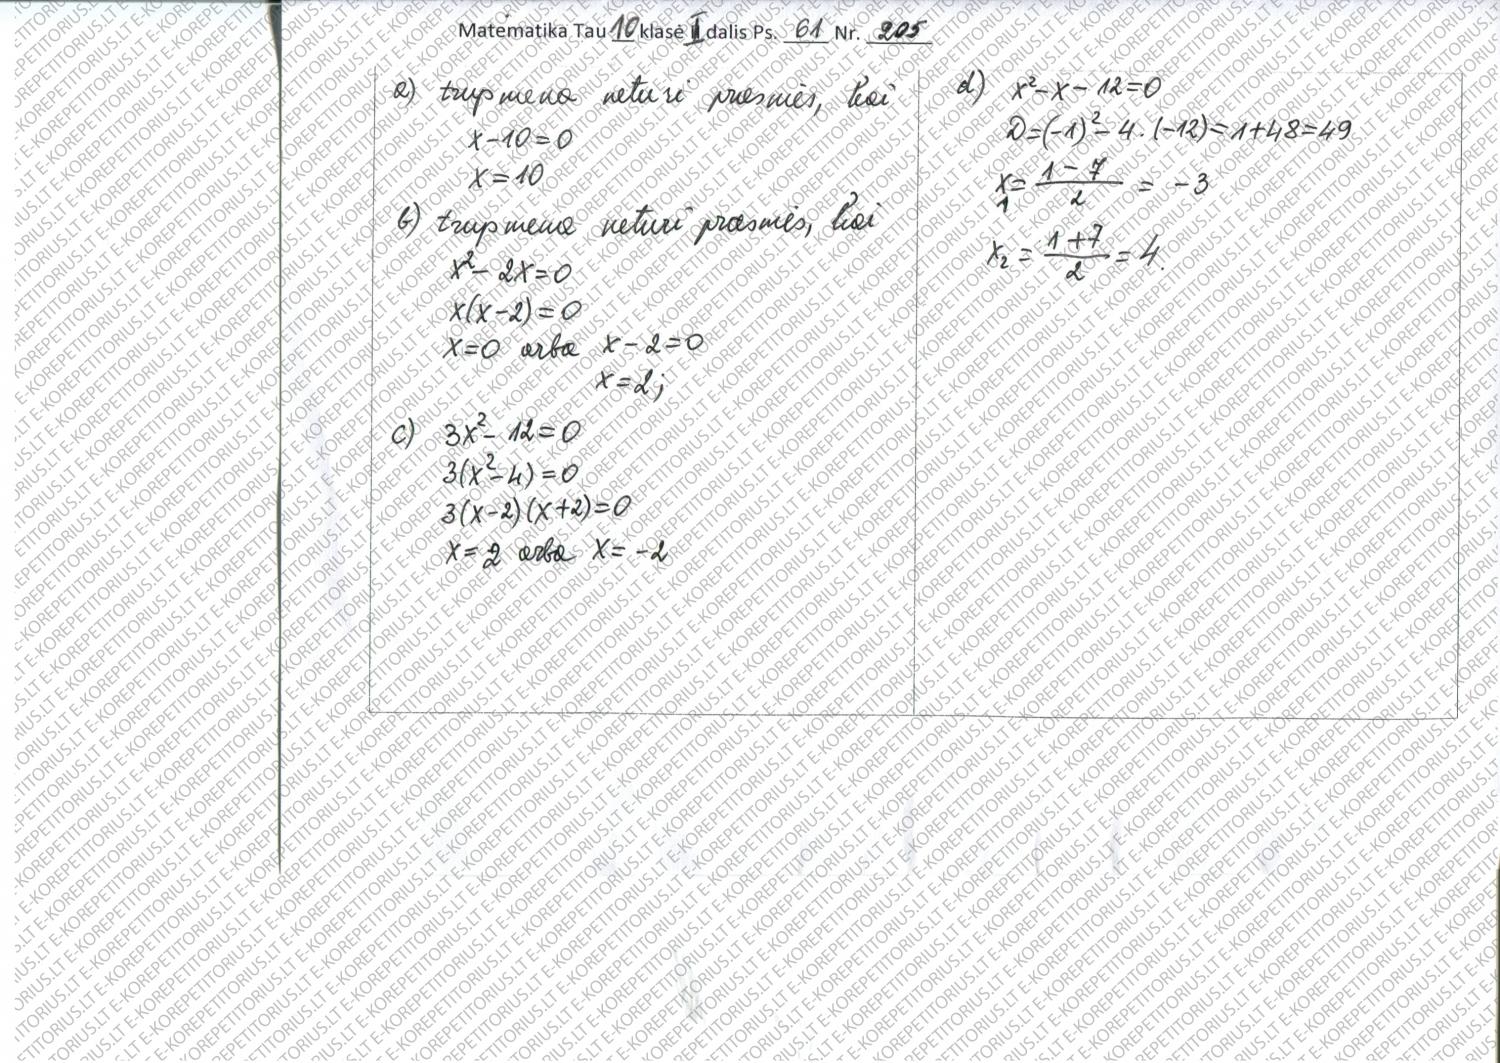 Matematika Tau 10 klasė II dalis Ps. 61 Nr. 205
a) trupmena neturi prasmės, kai
x-10=0
x=10
b) trupmena neturi prasmės, kai
x²-2x=0
x(x-2)=0
x=0 arba x-2=0
x=2;
c) 3x²-12=0
3(x²-4)=0
3(x-2)(x+2)=0
x=2 arba x=-2
d) x²-x-12=0
D=(-1)²-4·(-12)=1+48=49
x₁=\frac{1-7}{2}=-3
x₂=\frac{1+7}{2}=4.
E-KOREPETITORIUS.LT